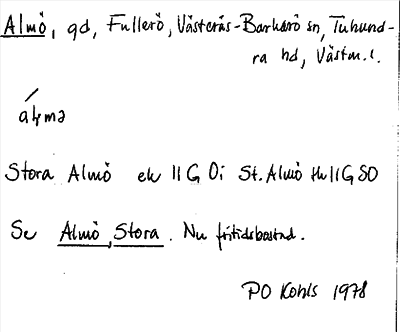 Almö, gd, Fullerö, Västerås-Barkarö sn, Tuhund-
ra hd, Västm.l.
Stora Almö ek 11 G 0i St. Almö tk 11G SO
Se Almö, Stora. Nu fritidsbostad.
PO Kohls 1978